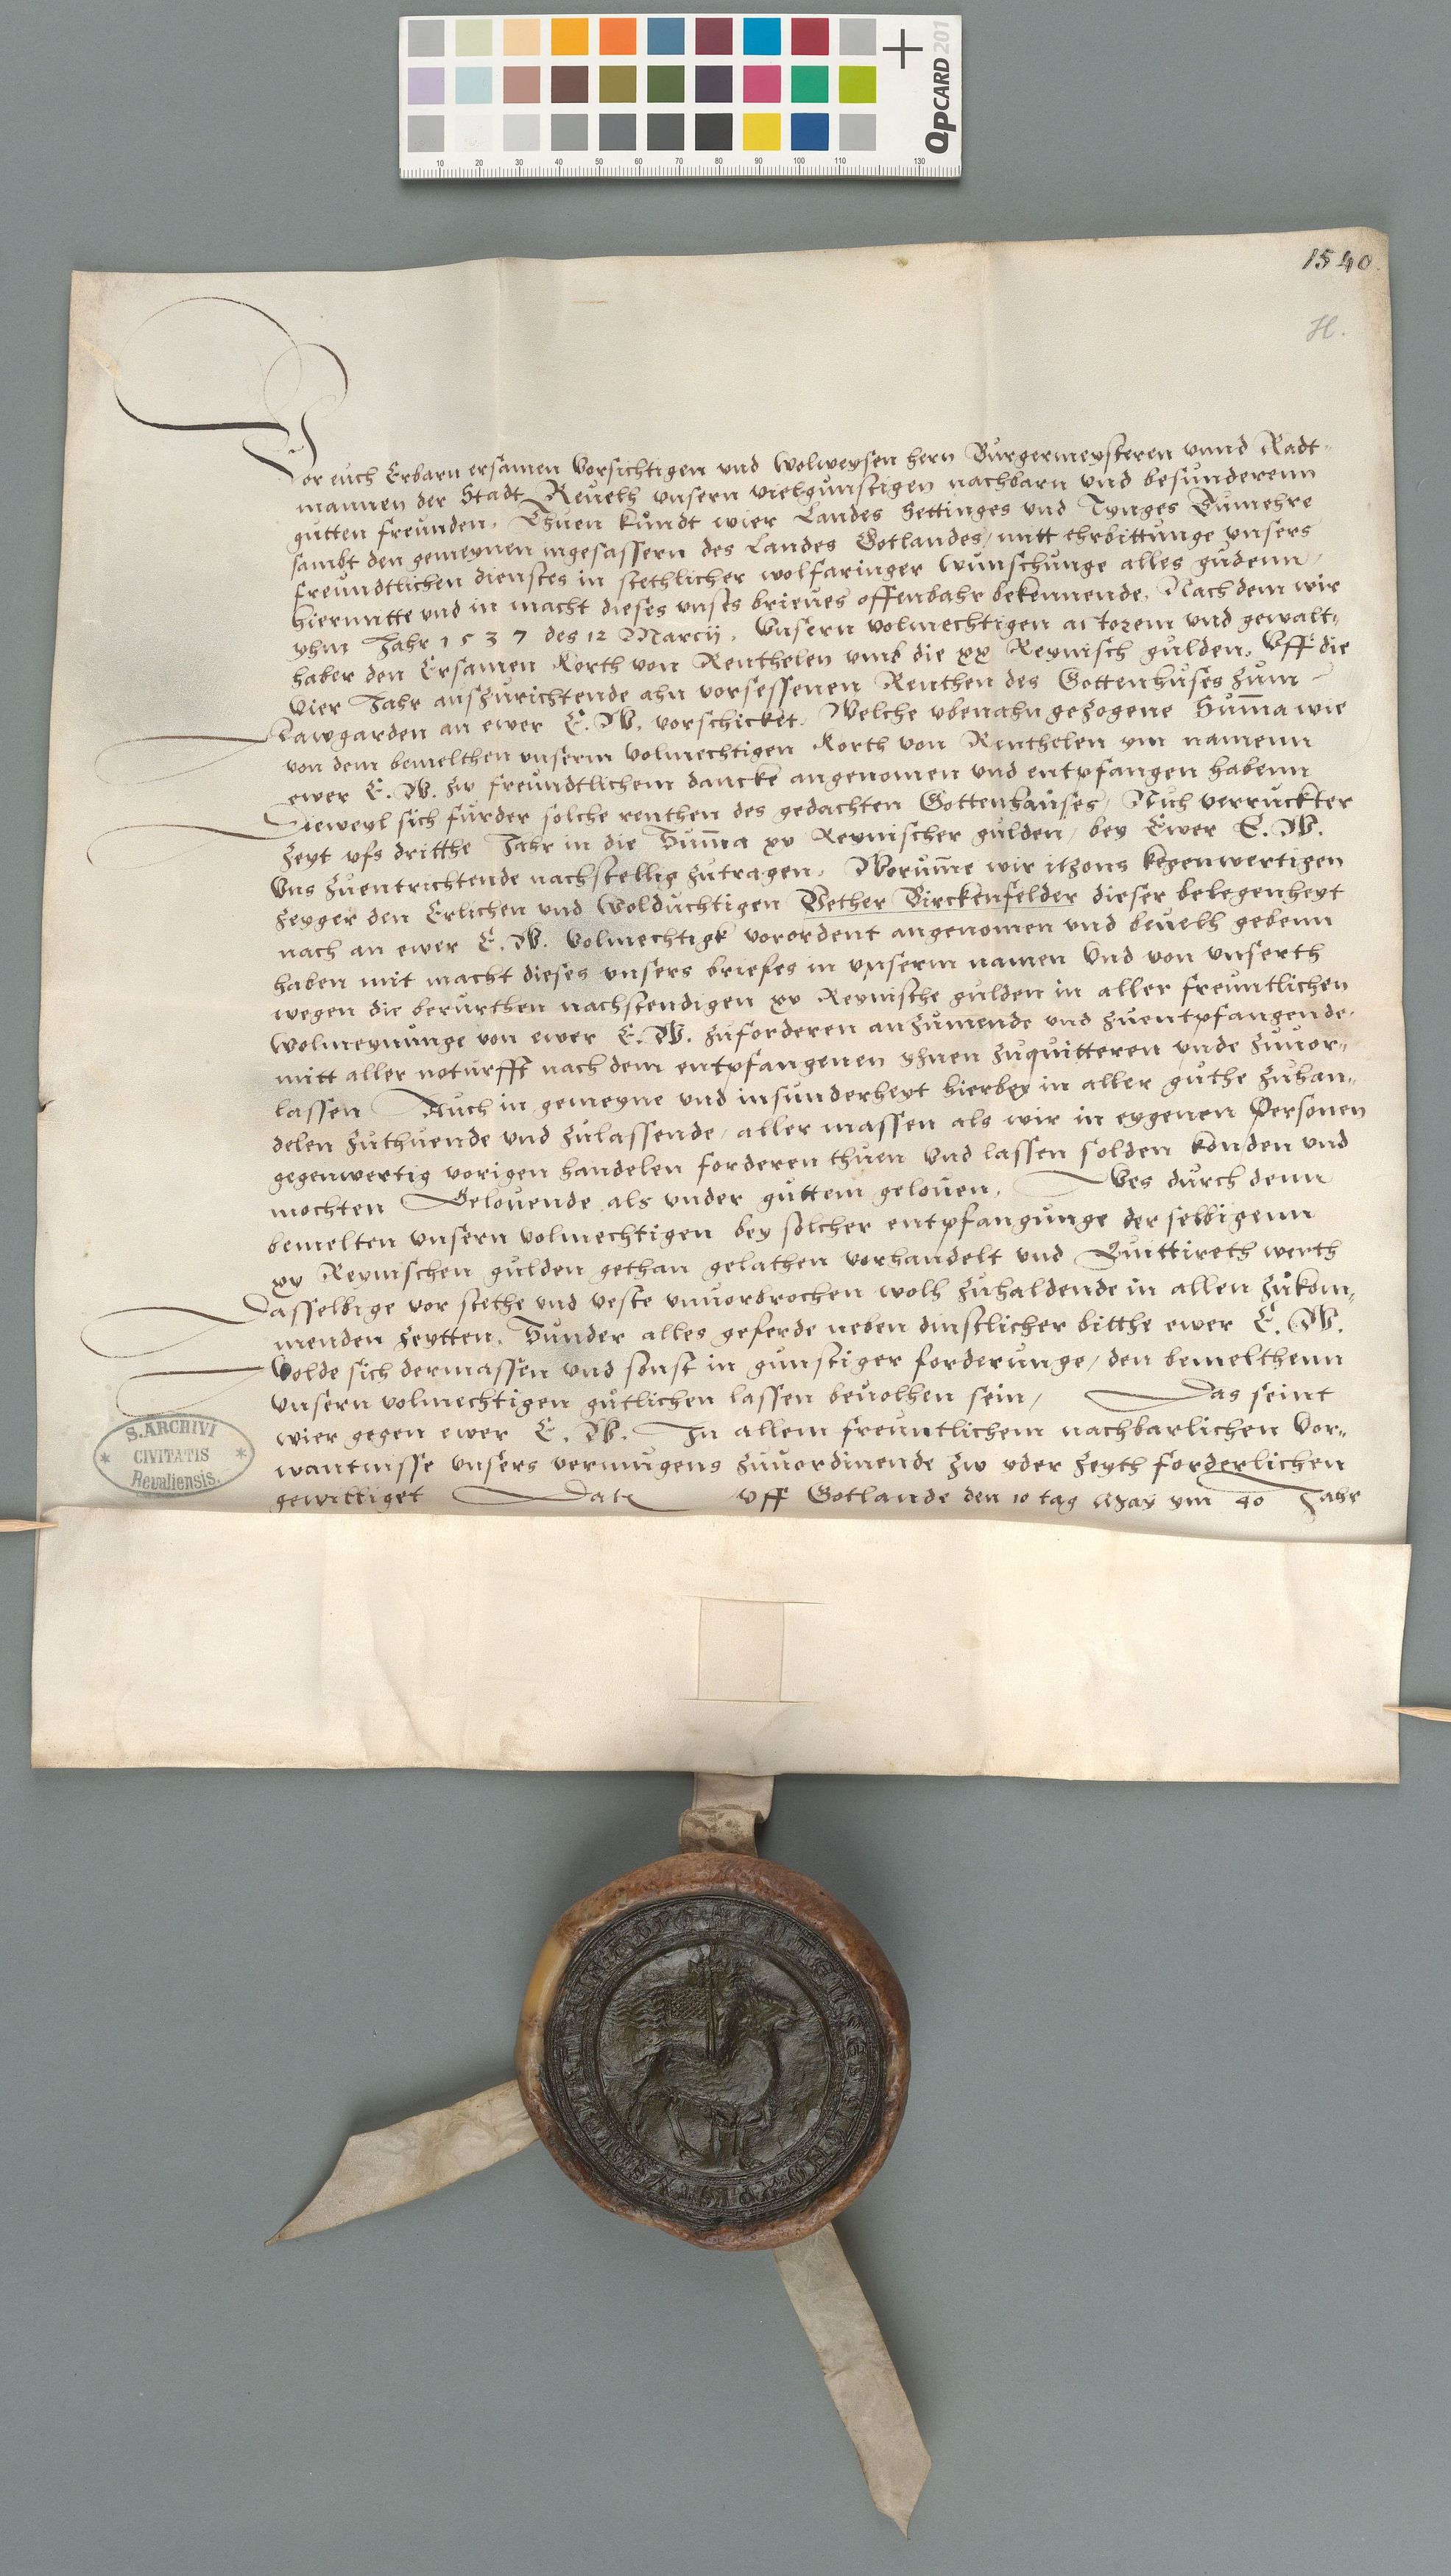 QpCARD 201
10 20 30 40 50 60 70 80 90 100 110 130
1540.
H.
Vor euch Erbarn ersamen Vorsichtigen und Wolweysen hern Burgermeysteren unnd Radt-
mannen der Stadt Reuelh unsern vielgunstigen nachbarn und besunderenn
gutten freunden. Thuen kundt wier Landes Settinges und Tynges Dumehre
sambt den gemeynen ingesassern des Landes Gotlandes, mitt ehrbittunge unsers
freundtlichen dienstes in stethlicher wolfaringer Wunschunge alles gudenn,
hiermitte und in macht dieses unsers brieues offenbahr bekennende. Nach dem wir
yhm Jahr 1537 des 12 Marcij. Unsern volmechtigen actorem und gewalt-
haber den Ersamen Korth von Renthelen umb die xx Reynisch gulden. Uff die
vier Jahr auszurichtende ahn vorsessenen Renthen des Gottenhuses zum
Kawgarden an ewer E. W. vorschicket. Welche ubenahngezogene Sum̄a wie
von dem bemelthen unserm volmechtigen Korth von Renthelen ym namenn
ewer E. W. zw freundtlichem dancke angenomen und entpfangen habenn
Dieweyl sich furder solche renthen des gedachten Gottenhauses, Nuh verruckter
zeyt ufs dritthe Jahr in die Sum̄a xv Reynischer gulden, bey Ewer E. W.
Uns zuentrichtende nachstellig zutragen. Worum̄e wir itzons kegenwertigen
zeyger den Erlichen und Wolduchtigen Pether Birckenfelder dieser belegenheyt
nach an ewer E. W. Volmechtigk vorordent angenomen und beuelh gebenn
haben mit macht dieses unsers briefes in unserm namen Und von unserth
wegen die berurthen nachstendigen xv Reynische gulden in aller freuntlichen
Wolmeynunge von ewer E. W. zuforderen anzumende und zuentpfangende.
mitt aller noturfft nach dem entpfangenen yhnen zuquitteren unde zuuor-
lassen Auch in gemeyne und insunderheyt hierbey in aller guthe zuhan-
delen zuthuende und zulassende, aller massen als wir in eygenen Personen
gegenwertig vorigen handelen forderen thuen Und lassen solden konden und
mochten Gelouende als under guttem gelouen, Wes durch denn
bemelten unsern volmechtigen bey solcher entpfangunge der selbigenn
xv Reynischen gulden gethan gelathen vorhandelt und Quittireth werth
Dasselbige vor stethe und veste unuorbrochen wolh zuhaldende in allen zukom-
menden zeytten. Sunder alles geferde neben dinstlicher bitthe ewer E. W.
Wolde sich dermassen und sonst in gunstiger forderunge, den bemelthenn
unsern volmechtigen gutlichen lassen beuolhen sein, Das seint
wier gegen ewer E. W. In allem freuntlichem nachbarlichen Vor-
wantnisse unsers vermugens zuuordinende zw yder zeyth forderlichen
gewilliget Datẽ uff Gotlande den 10 tag May ym 40 Jahr
S. ARCHIVI
* CIVITATIS *
Revaliensis.